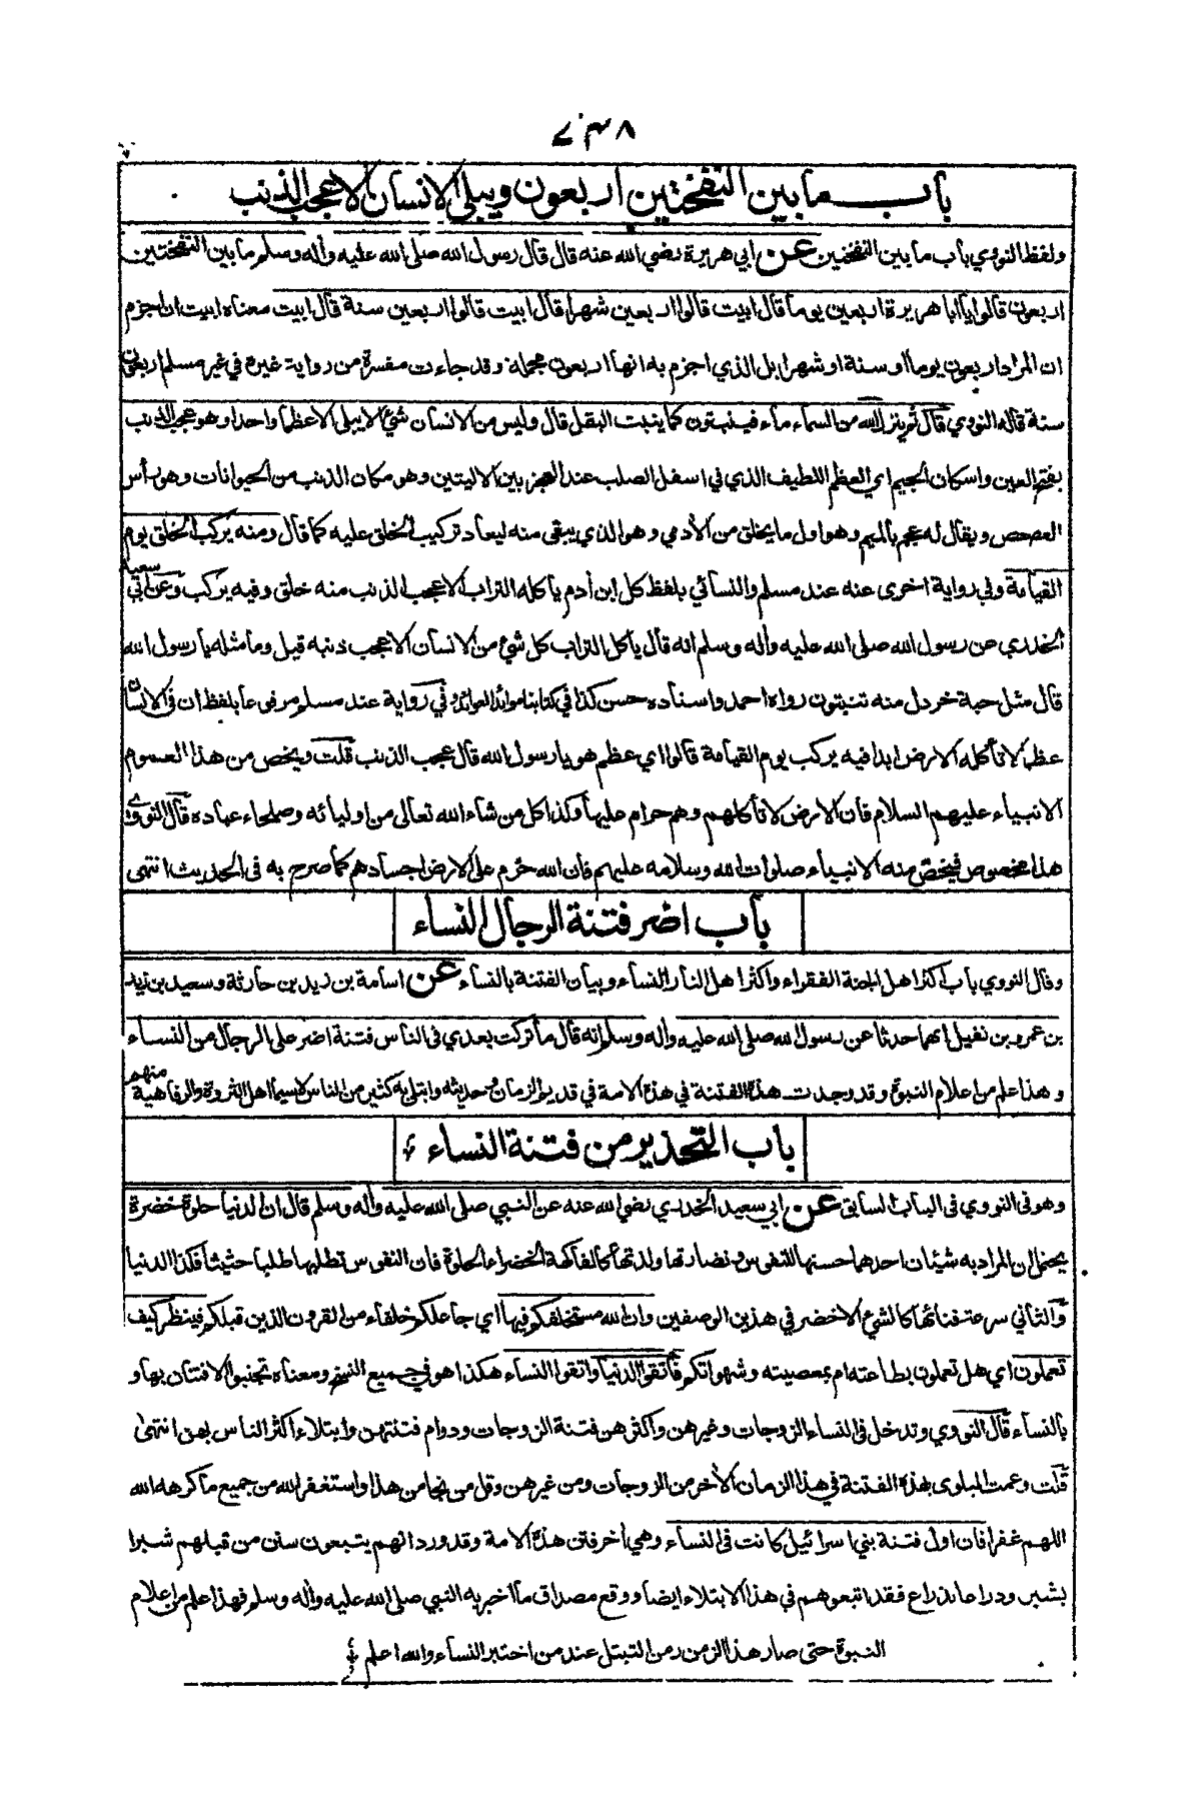 باب ما بين النفختين اربعون ويبلى الانسان الا عجب الذنب
ولفظ النووي باب ما بين النفختين عن ابي هريرة رضي الله عنه قال قال رسول الله صلى الله عليه وأله وسلم ما بين النفختين
اربعون قالوا يا ابا هريرة اربعين يوما قال ابيت قالوا اربعين شهرا قال ابيت قالوا اربعين سنة قال ابيت معناه ابيت ان اجزم
ان المراد اربعون يوما او سنة او شهرا بل الذي اجزم به انها اربعون مجملة وقد جاءت مفسرة من رواية غيره في غير مسلم اربعون
سنة قاله النووي قال ثم ينزل الله من السماء ماء فينبتون كما ينبت البقل قال وليس من الانسان شئ الا يبلى الا عظما واحدا وهو عجب الذنب
بفتح العين واسكان الجيم اي العظم اللطيف الذي في اسفل الصلب عند العجز بين الاليتين وهو مكان الذنب من الحيوانات وهو رأس
العصعص ويقال له عجم بالميم وهو اول ما يخلق من الأدمي وهو الذي يبقى منه ليعاد تركيب الخلق عليه كما قال ومنه يركب الخلق يوم
القيامة وفي رواية اخرى عنه عند مسلم والنسائي بلفظ كل ابن أدم يأكله التراب الا عجب الذنب منه خلق وفيه يركب وعن ابي سعيد
الخدري عن رسول الله صلى الله عليه وأله وسلم انه قال يأكل التراب كل شئ من الانسان الا عجب ذنبه قيل وما مثله يا رسول الله
قال مثل حبة خردل منه تنبتون رواه احمد واسناده حسن كذا في كتابنا موائد العوائد وفي رواية عند مسلم مرفوعا بلفظ ان في الانسان
عظما لا تأكله الارض ابدا فيه يركب يوم القيامة قالوا اي عظم هو يا رسول الله قال عجب الذنب قلت ويخص من هذا العموم
الانبياء عليهم السلام فان الارض لا تأكلهم وهم حرام عليها وكذا كل من شاء الله تعالى من اوليائه وصلحاء عباده قال النووي
هذا مخصوص فيخص منه الانبياء صلوات الله وسلامه عليهم فان الله حرم على الارض اجسادهم كما صرح به في الحديث انتهى
باب اضر فتنة الرجال النساء
وقال النووي باب اكثر اهل الجنة الفقراء واكثر اهل النار النساء وبيان الفتنة بالنساء عن اسامة بن زيد بن حارثة وسعيد بن زيد
بن عمرو بن نفيل انهما حدثا عن رسول الله صلى الله عليه وأله وسلم انه قال ما تركت بعدي في الناس فتنة اضر على الرجال من النساء
وهذا علم من اعلام النبوة وقد وجدت هذه الفتنة في هذه الامة في قديم الزمان وحديثه وابتلي به كثير من الناس لاسيما اهل الثروة والرفاهية منهم
باب التحذير من فتنة النساء
وهو في النووي في الباب السابق عن ابي سعيد الخدري رضي الله عنه عن النبي صلى الله عليه وأله وسلم قال ان الدنيا حلوة خضرة
يحتمل ان المراد به شيئان احدهما حسنها للنفوس ونضارتها ولذتها كالفاكهة الخضراء الحلوة فان النفوس تطلبها طلبا حثيثا فكذا الدنيا
والثاني سرعة فنائها كالشئ الاخضر في هذين الوصفين وان الله مستخلفكم فيها اي جاعلكم خلفاء من القرون الذين قبلكم فينظر كيف
تعملون اي هل تعملون بطاعته ام بمعصيته وشهواتكم فاتقوا الدنيا واتقوا النساء هكذا هو في جميع النسخ ومعناه تجنبوا الافتتان بها و
بالنساء قال النووي وتدخل في النساء الزوجات وغيرهن واكثرهن فتنة الزوجات ودوام فتنتهن وابتلاء اكثر الناس بهن انتهى
قلت وعمت البلوى بهذه الفتنة في هذا الزمان الأخر من الزوجات ومن غيرهن وقل من نجا من هذا واستغفر الله من جميع ما كرهه الله
اللهم غفرا فان اول فتنة بني اسرائيل كانت في النساء وهي أخر فتن هذه الامة وقد ورد انهم يتبعون سنن من قبلهم شبرا
بشبر وذراعا بذراع فقد اتبعوهم في هذا الابتلاء ايضا ووقع مصداق ما اخبر به النبي صلى الله عليه وأله وسلم فهذا علم من اعلام
النبوة حتى صار هذا الزمن زمن التبتل عند من اختبر النساء والله اعلم